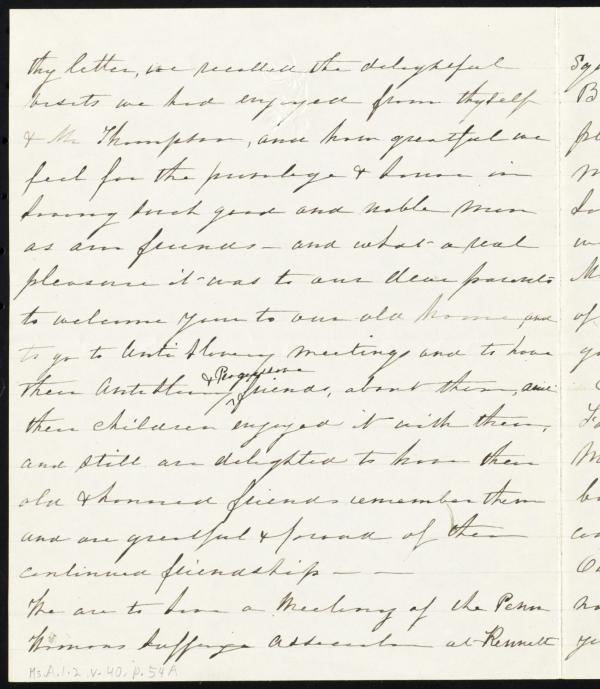 thy letter, we recalled the delightful
visits we had enjoyed from thyself
& Mr Thompson, and how greatful we
feel for the privilege & honor in
having such good and noble men
as our friends – and what a real
pleasure it was to our dear parents
to welcome you to our old home and
to go to Anti Slavery meetings and to have
& Progressive
their AntiSlavery friends, about them, and
their children enjoyed it with them,
and still are delighted to have their
old & honored friends remember them
and are greatful & proud of their
continued friendship – –
We are to have a Meeting of the Penn
Womans Suffrage Association at Kennett
Ms.A.1.2.v.40.p.54A